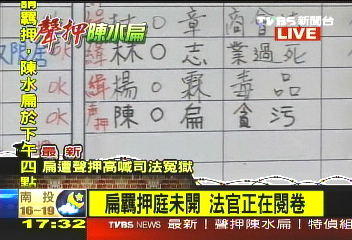 TVBS 新聞台
LIVE
聲押陳水扁
請羈押,陳水扁於下午四點
林○章 商會
OK 緝 林○志 業過死
OK 緝 楊○霖 毒品
OK 聲押 陳○扁 貪污
最新
扁遭聲押高喊司法冤獄
南投
16~19
扁羈押庭未開 法官正在閱卷
17:32
TVBS NEWS
最新!聲押陳水扁!特偵組